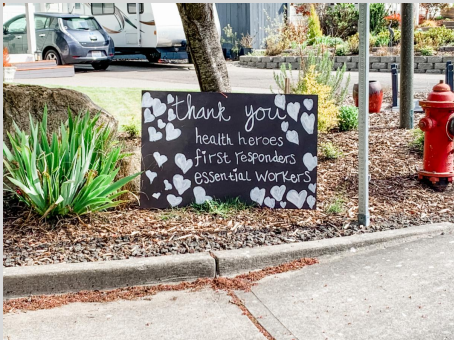 thank you
health heroes
first responders
essential workers